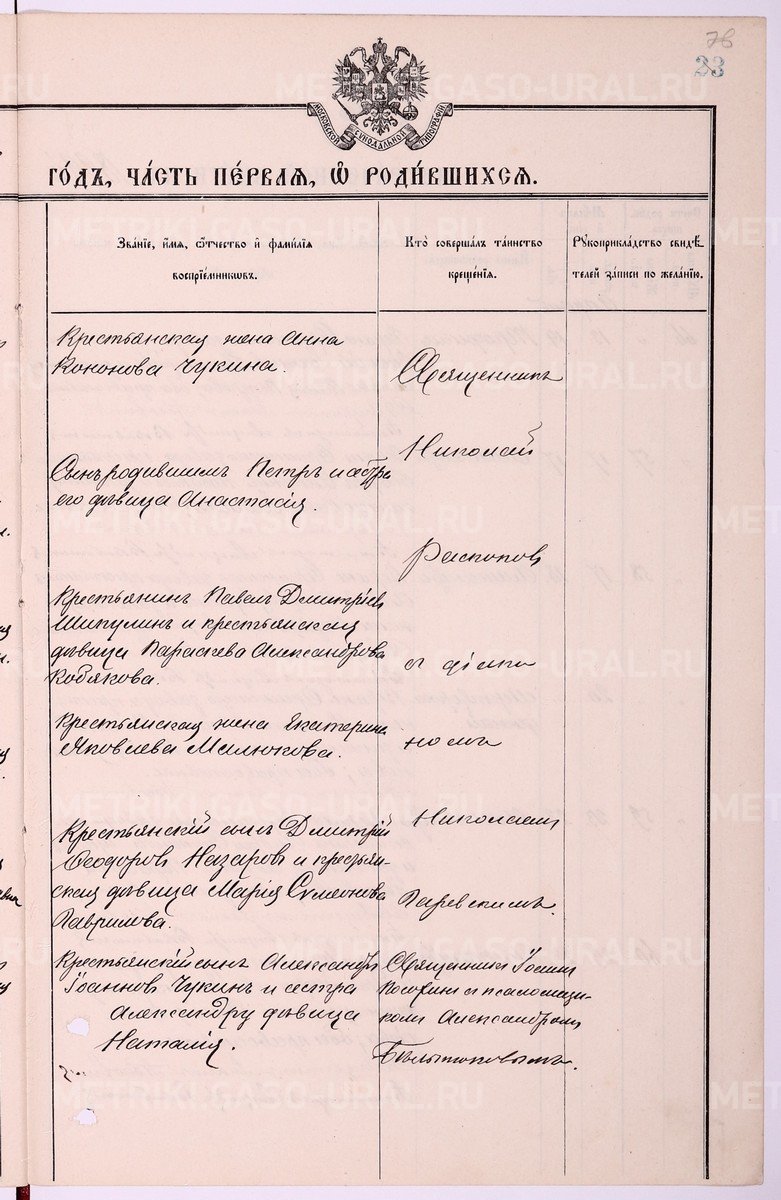 76
23
МОСКОВСКОЙ СѴНОДАЛЬНОЙ ТИПОГРАФІИ
METRIKI.GASO-URAL.RU
ГО́ДЪ, ЧА́СТЬ ПЕ́РВАЯ, Ѡ҆ РОДИ́ВШИХСЯ.
Зва́нїе, и҆́мя, ѻ҆́тчество и҆ фами́лїя
воспрїе́мникѡвъ.
Кто̀ соверша́лъ та́инство
креще́нїя.
Рꙋкоприкла́дство свидѣ́
телей за́писи по жела́нїю.
Крестьянская жена Анна
Кононова Чукина.
Священникъ
Николай
Сынъ родившимъ Петръ и сестра
его дѣвица Анастасія.
Распоповъ
Крестьянинъ Павелъ Дмитріевъ
Шипулинъ и крестьянская
дѣвица Параскева Александрова
Кобякова.
съ діако
Крестьянская жена Екатерина
Яковлева Милюкова.
номъ
Николаемъ
Крестьянскій сынъ Дмитрій
Ѳеодоровъ Назаровъ и крестьян-
ская дѣвица Марія Сѵмеонова
Гаврилова.
Паревскимъ.
Крестьянскій сынъ Александръ
Іоанновъ Чукинъ и сестра
Александру дѣвица
Наталія.
Священникъ Іоаннъ
съ псаломщи-
комъ Александромъ
METRIKI.GASO-URAL.RU